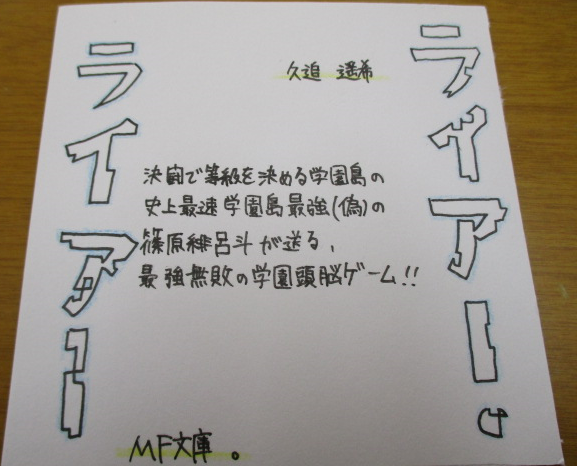 ライアー。
久追 遥希
決闘で等級を決める学園島の
史上最速学園島最強(偽)の
篠原緋呂斗が送る、
最強無敗の学園頭脳ゲーム!!
ライアー
MF文庫。